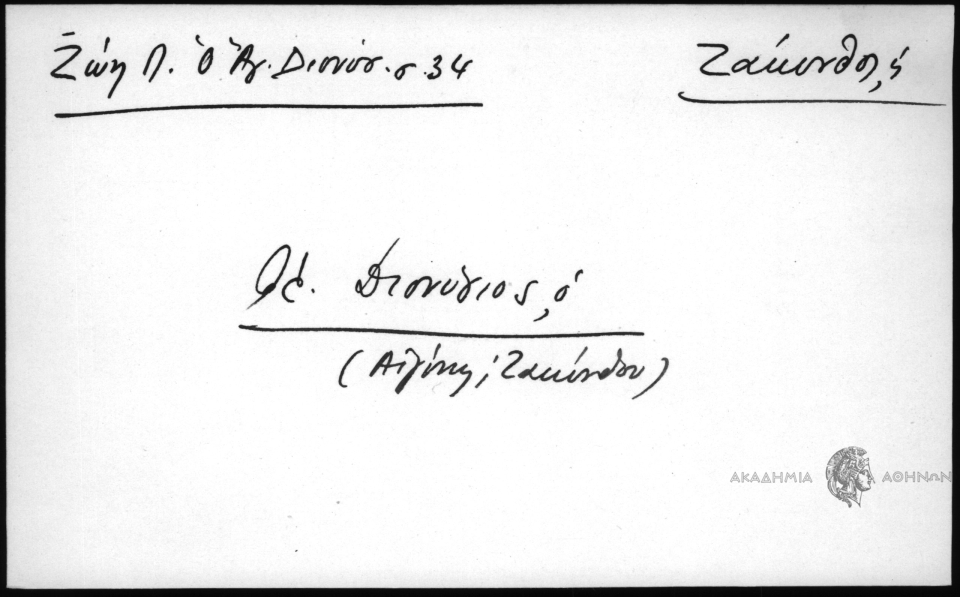 Ζώη Π. Ὁ Ἅγ. Διονύσ. σ. 34
Ζάκυνθος, ἡ
Ἅγ. Διονύσιος, ὁ
(Αἰγίνης, Ζακύνθου)
ΑΚΑΔΗΜΙΑ ΑΘΗΝΩΝ